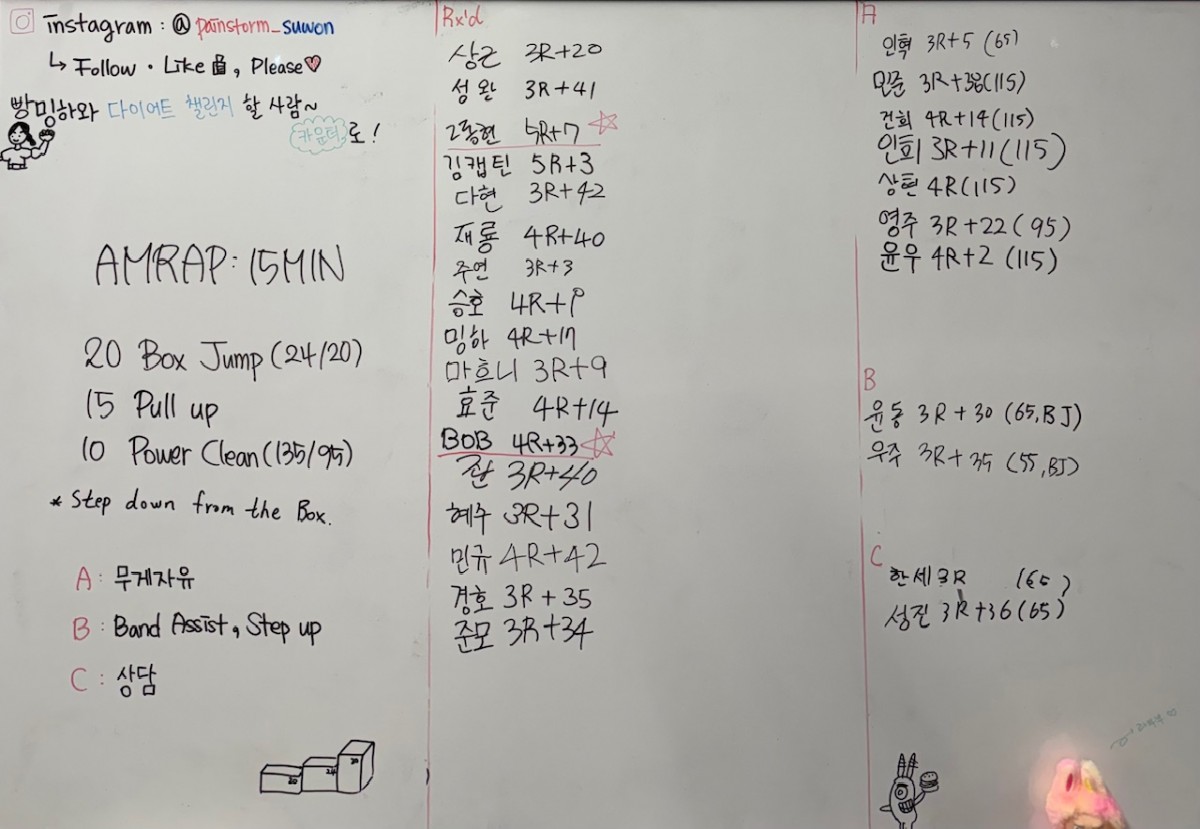 instagram : @painstorm_suwon
↳ Follow · Like, Please♡
빵밍하와 다이어트 챌린지 할 사람~
카운터로!
AMRAP : 15MIN
20 Box Jump (24/20)
15 Pull up
10 Power Clean (135/95)
* Step down from the Box.
A : 무게자유
B : Band Assist, Step up
C : 상담
20 24 30
Rx'd
상근 3R+20
성완 3R+41
고종현 5R+7 ☆
김캡틴 5R+3
다현 3R+42
재룡 4R+40
주연 3R+3
승호 4R+1
밍하 4R+17
마흐니 3R+9
효준 4R+14
BOB 4R+33 ☆
3R+40
혜주 3R+31
민규 4R+42
경호 3R+35
준모 3R+34
A
인혁 3R+5 (65)
민준 3R+36 (115)
건희 4R+14 (115)
인회 3R+11 (115)
상현 4R (115)
영주 3R+22 (95)
윤우 4R+2 (115)
B
윤동 3R+30 (65,BJ)
우주 3R+35 (55,BJ)
C
한세 3R (65)
성진 3R+36 (65)